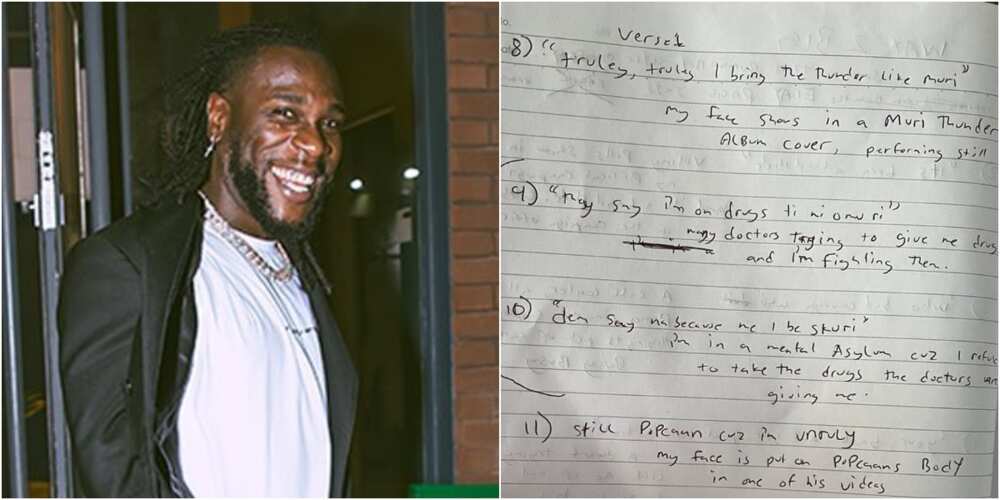 Verse 1
8) "truley, truley I bring the thunder like muri"
my face shows in a Muri Thunder
ALBUM cover, performing still
9) "they say i'm on drugs ti mi omu ri"
many doctors trying to give me drug
and I'm fighting them.
10) "dem say na because me I be skuri"
i'm in a mental Asylum cuz I refu
to take the drugs the doctors
giving me.
11) still POPcaan cuz im unruly
my face is put on POPcaans BODY
in one of his videos